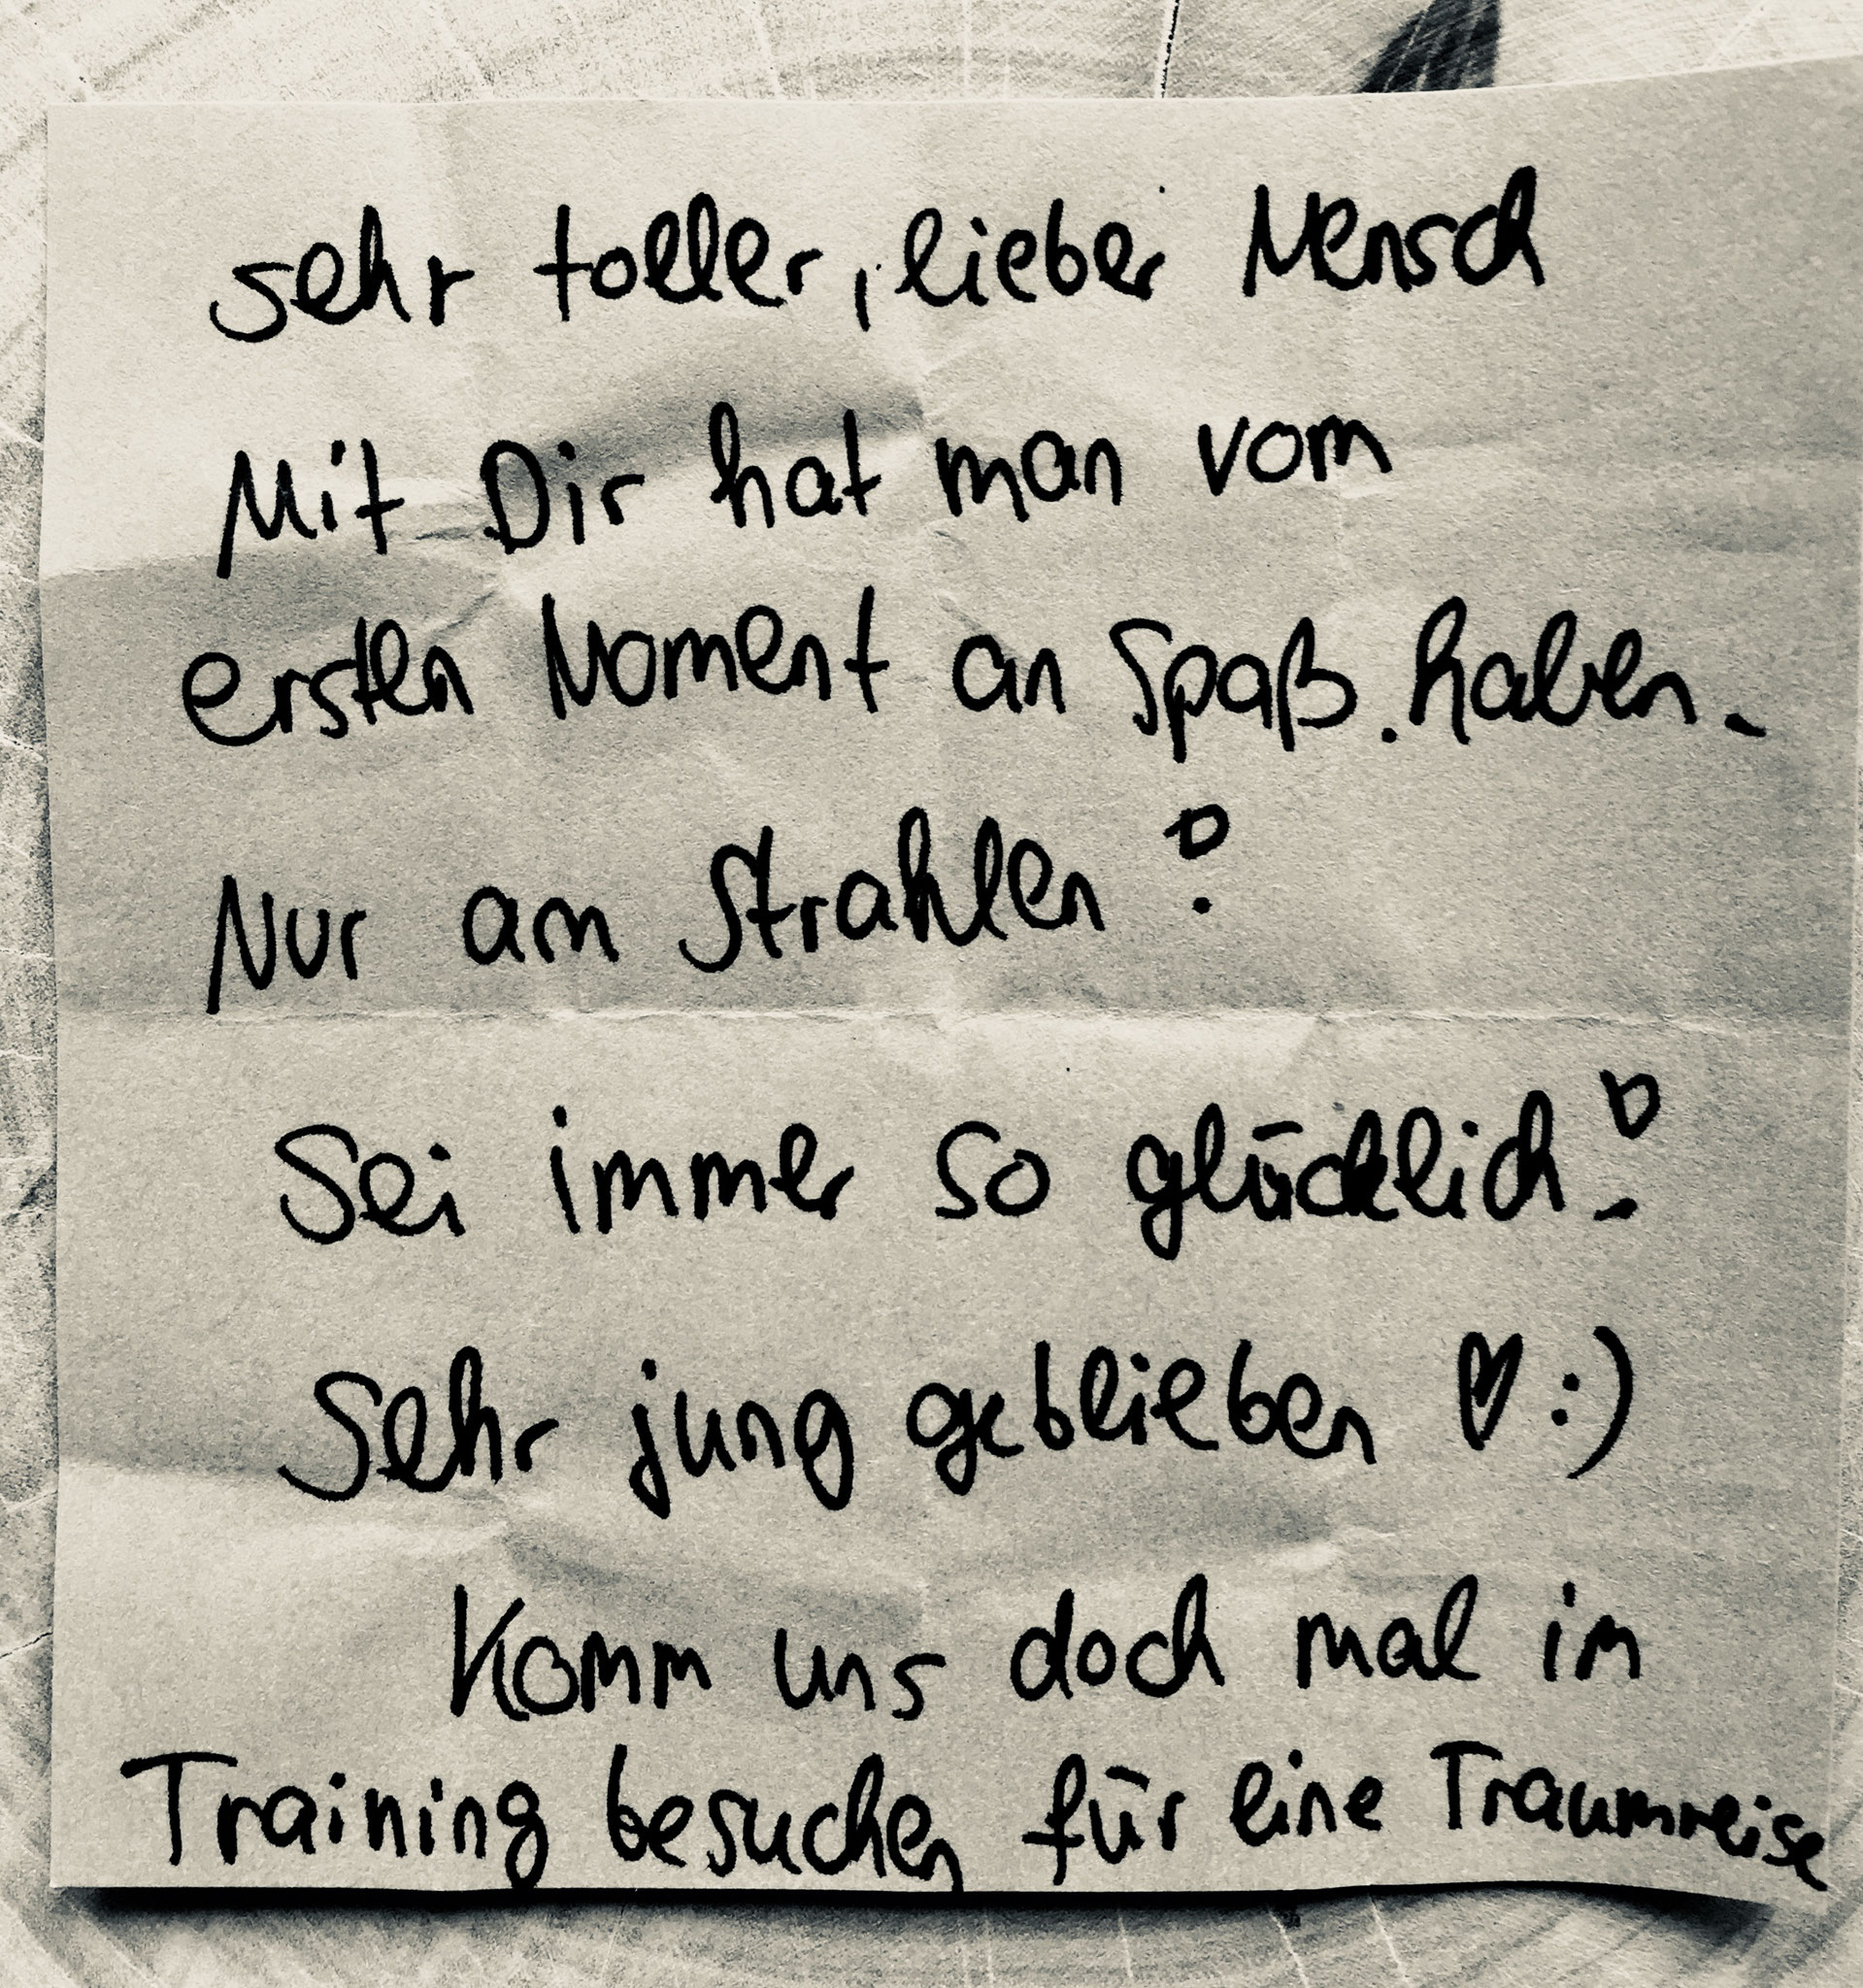 sehr toller, lieber Mensch
Mit Dir hat man vom
ersten Moment an Spaß haben.
Nur am Strahlen!
Sei immer so glücklich!
Sehr jung geblieben ♥ :)
Komm uns doch mal im
Training besuchen für eine Traumreise